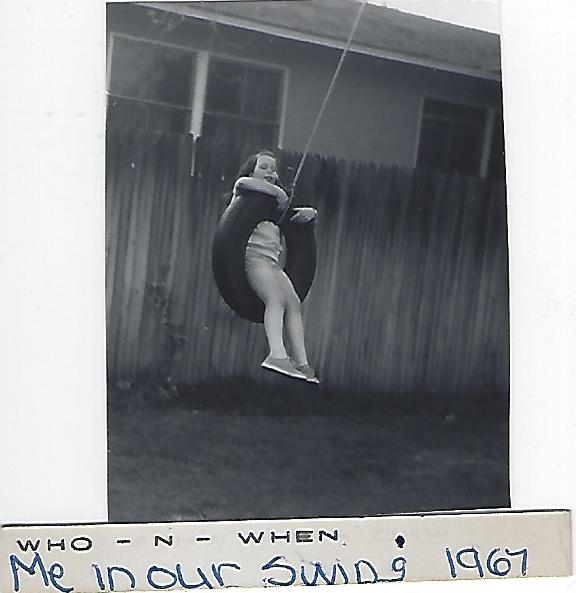 WHO - N - WHEN.
Me in our Swing 1967